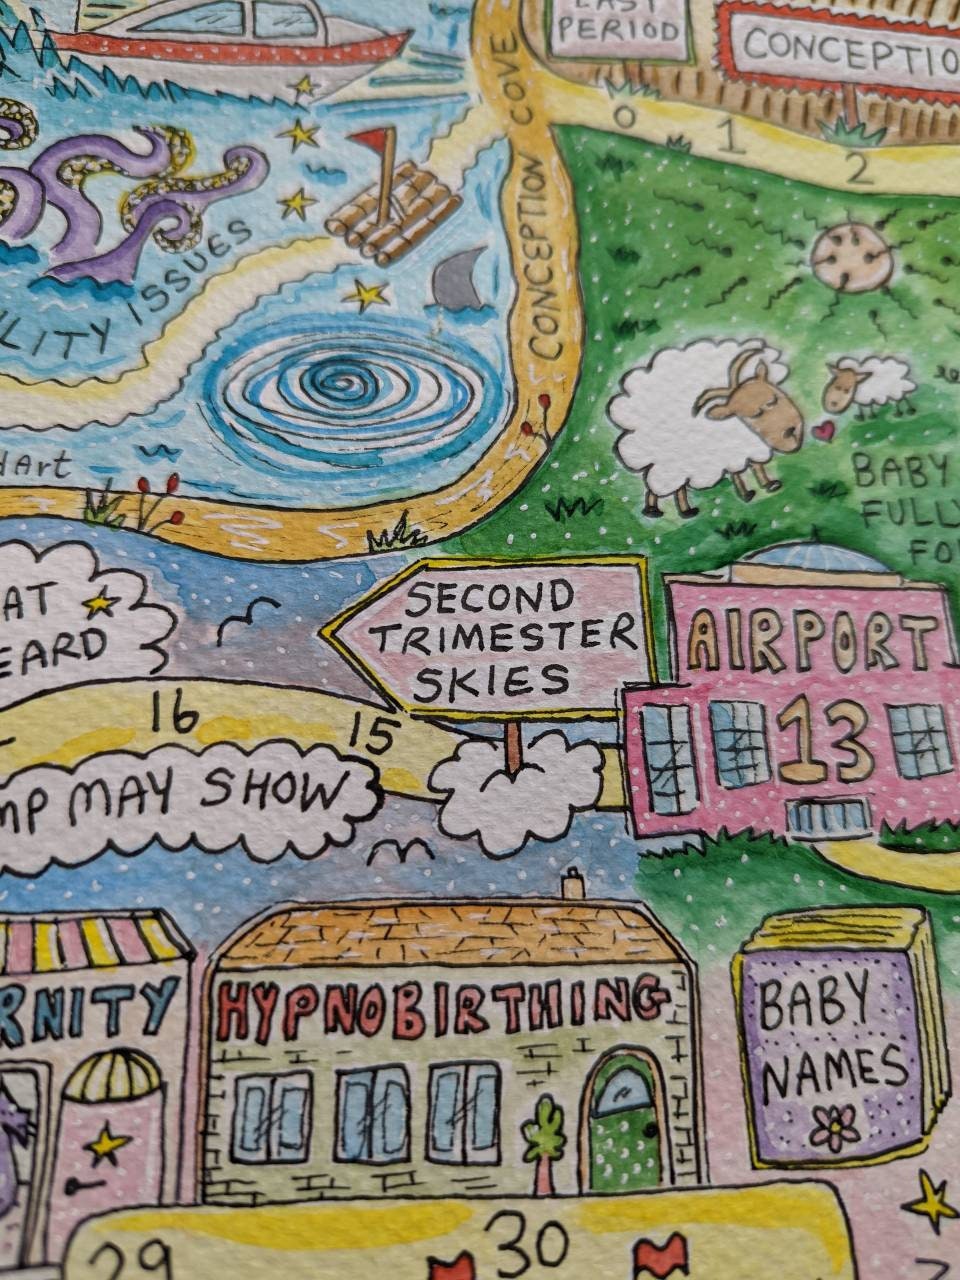 LAST
PERIOD
CONCEPTIO
0
1
2
CONCEPTION COVE
LITY ISSUES
dArt
BABY
FULLY
FO
AT
EARD
SECOND
TRIMESTER
SKIES
AIRPORT
13
16
15
MP MAY SHOW
RNITY
HYPNOBIRTHING
BABY
NAMES
29
30